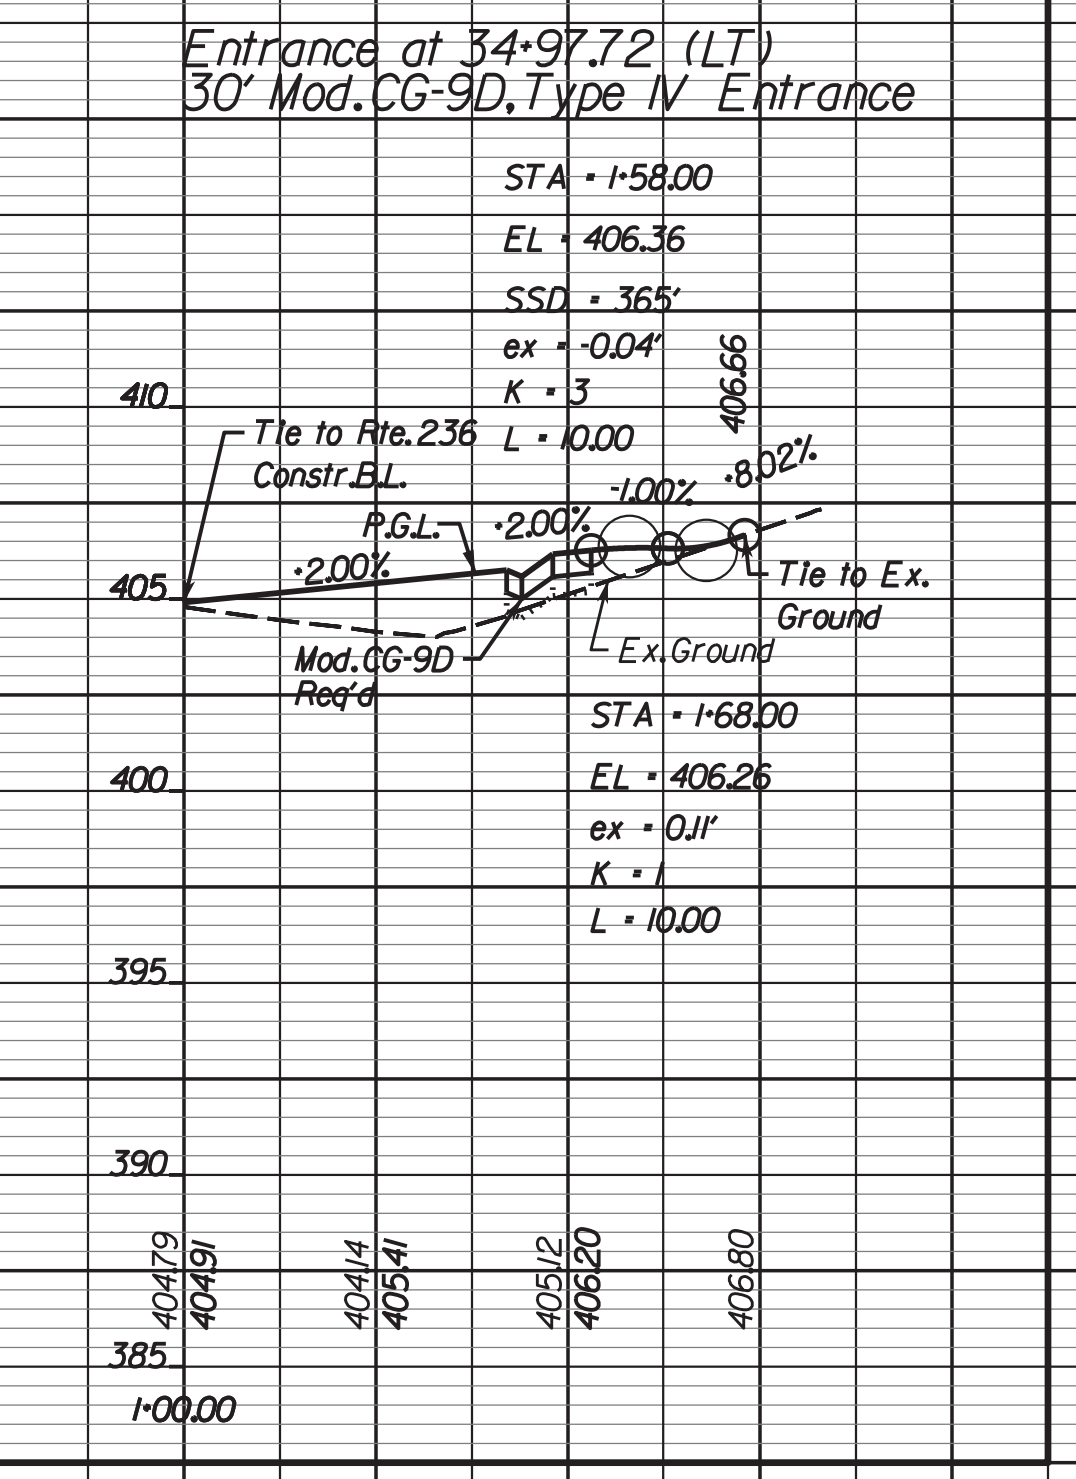 Entrance at 34+97.72 (LT)
30' Mod. CG-9D, Type IV Entrance
STA = 1+58.00
EL = 406.36
SSD = 365'
ex = -0.04'
K = 3
L = 10.00
406.66
410
Tie to Rte. 236
Constr. B.L.
P.G.L.
+2.00%
+2.00%
-1.00%
+8.02%
405
Tie to Ex.
Ground
Mod. CG-9D
Req'd
Ex. Ground
STA = 1+68.00
EL = 406.26
ex = 0.11'
K = 1
L = 10.00
400
395
390
404.79
404.91
404.14
405.41
405.12
406.20
406.80
385
1+00.00